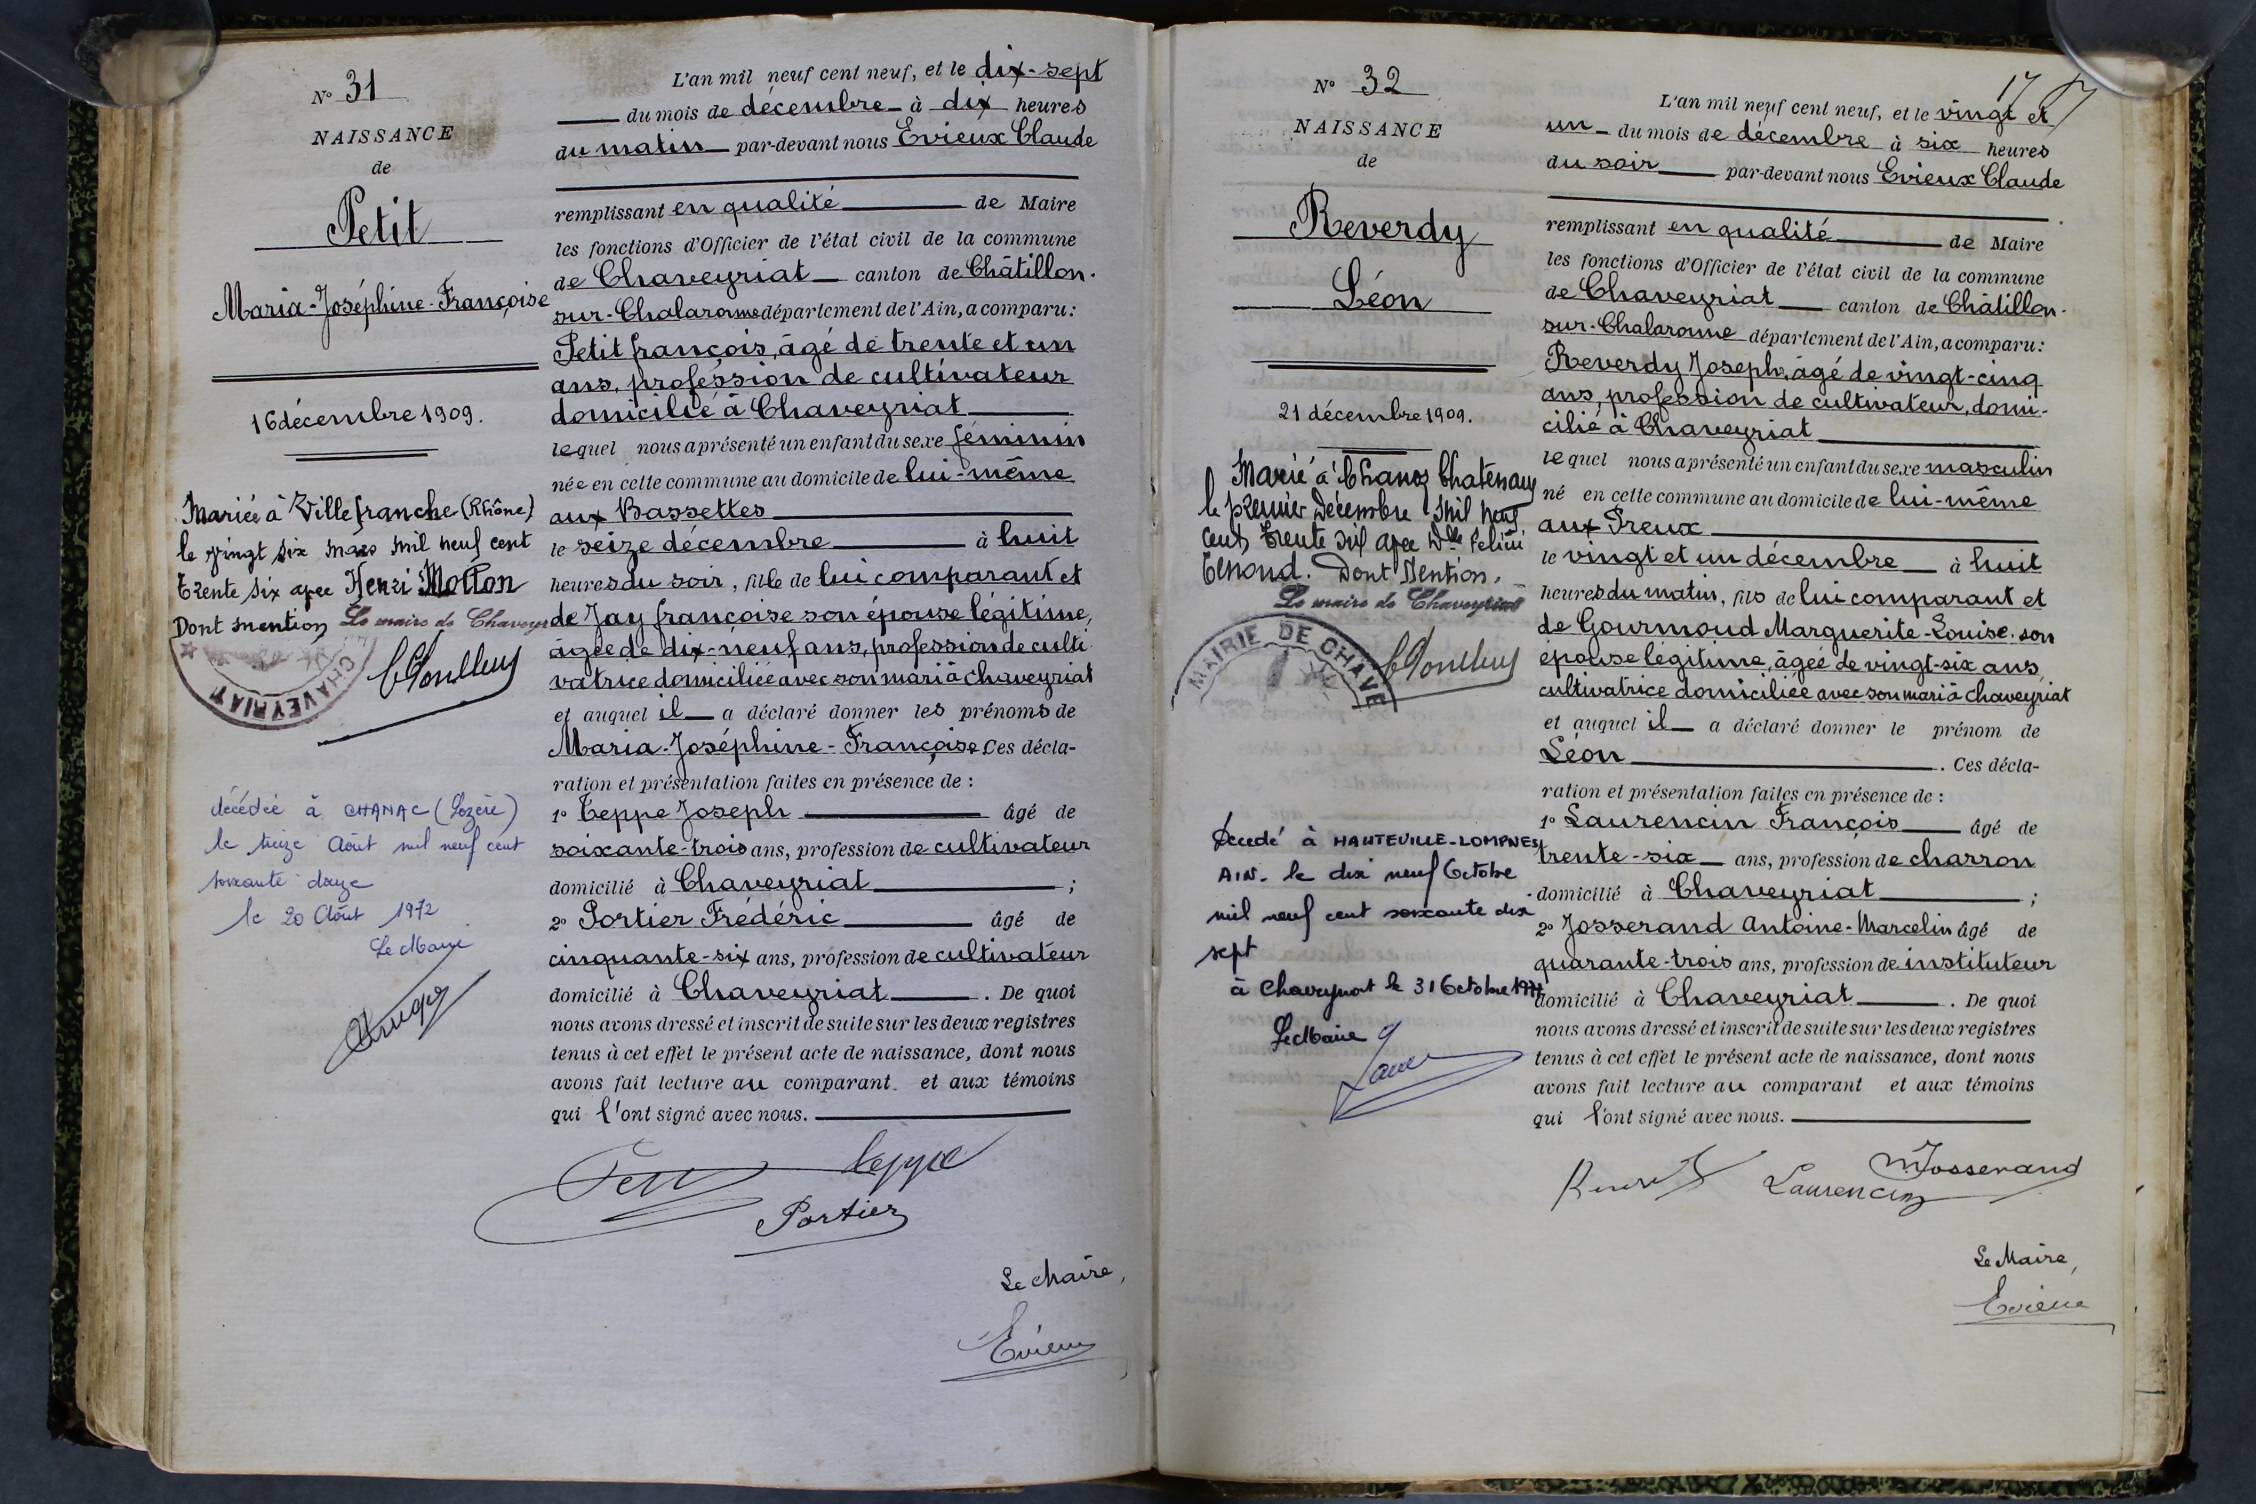 N° 31
NAISSANCE
de
Petit
Maria-Joséphine-Françoise
16 décembre 1909.
Mariée à Villefranche (Rhône)
le vingt six mars mil neuf cent
trente six avec Henri Motton
Dont mention Le maire de Chaveyr
CHAVEYRIAT
décédée à CHANAC (Lozère)
le treize Août mil neuf cent
soixante douze
le 20 Août 1972
Le Maire
L'an mil neuf cent neuf, et le dix-sept
du mois de décembre à dix heures
du matin par-devant nous Evieux Claude
remplissant en qualité de Maire
les fonctions d'Officier de l'état civil de la commune
de Chaveyriat canton de Châtillon-
sur-Chalaronne département de l'Ain, a comparu:
Petit françois, âgé de trente et un
ans, profession de cultivateur
domicilié à Chaveyriat
lequel nous a présenté un enfant du sexe féminin
née en cette commune au domicile de lui-même
aux Bassettes
le seize décembre à huit
heures du soir, fille de lui comparant et
de Jay françoise son épouse légitime,
âgée de dix-neuf ans, profession de culti
vatrice domiciliée avec son mari à Chaveyriat
et auquel il a déclaré donner les prénoms de
Maria-Joséphine-Françoise. Ces décla-
ration et présentation faites en présence de :
1° Teppe Joseph âgé de
soixante-trois ans, profession de cultivateur
domicilié à Chaveyriat ;
2° Portier Frédéric âgé de
cinquante-six ans, profession de cultivateur
domicilié à Chaveyriat . De quoi
nous avons dressé et inscrit de suite sur les deux registres
tenus à cet effet le présent acte de naissance, dont nous
avons fait lecture au comparant et aux témoins
qui l'ont signé avec nous.
Petit Teppe
Portier
Le Maire,
Evieux
N° 32
NAISSANCE
de
Reverdy
Léon
21 décembre 1909.
Marié à Chanoz Chatenay
le premier Décembre mil neuf
cent trente six avec Dlle
Dont Mention.
Le maire de Chaveyriat
MAIRIE DE CHAVE
Décédé à HAUTEVILLE-LOMPNES
AIN. le dix neuf Octobre
mil neuf cent soixante dix
sept
à Chaveyriat le 31 Octobre 1977
Le Maire
17
L'an mil neuf cent neuf, et le vingt et
un du mois de décembre à six heures
du soir par-devant nous Evieux Claude
remplissant en qualité de Maire
les fonctions d'Officier de l'état civil de la commune
de Chaveyriat canton de Châtillon-
sur-Chalaronne département de l'Ain, a comparu:
Reverdy Joseph, âgé de vingt-cinq
ans, profession de cultivateur, domi-
cilié à Chaveyriat
lequel nous a présenté un enfant du sexe masculin
né en cette commune au domicile de lui-même
aux Preux
le vingt et un décembre à huit
heures du matin, fils de lui comparant et
de Gourmoud Marguerite-Louise son
épouse légitime, âgée de vingt-six ans,
cultivatrice domiciliée avec son mari à Chaveyriat
et auquel il a déclaré donner le prénom de
Léon . Ces décla-
ration et présentation faites en présence de :
1° Laurencin François âgé de
trente-six ans, profession de charron
domicilié à Chaveyriat ;
2° Josserand Antoine-Marcelin âgé de
quarante-trois ans, profession de instituteur
domicilié à Chaveyriat . De quoi
nous avons dressé et inscrit de suite sur les deux registres
tenus à cet effet le présent acte de naissance, dont nous
avons fait lecture au comparant et aux témoins
qui l'ont signé avec nous.
Laurencin Josserand
Le Maire,
Evieux